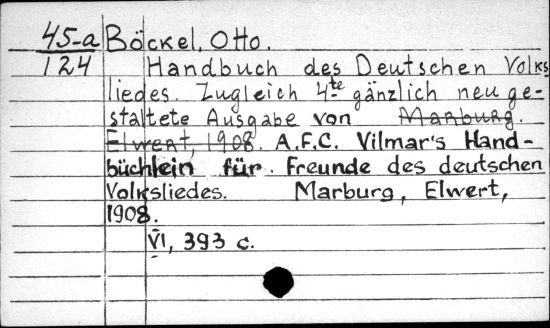 45-a Böckel, Otto.
124 Handbuch des Deutschen Volks
liedes. Zugleich 4te gänzlich neu ge-
staltete Ausgabe von Marburg.
Elwert, 1908. A.F.C. Vilmar's Hand-
büchlein für Freunde des deutschen
Volksliedes. Marburg, Elwert,
1908.
VI, 393 c.